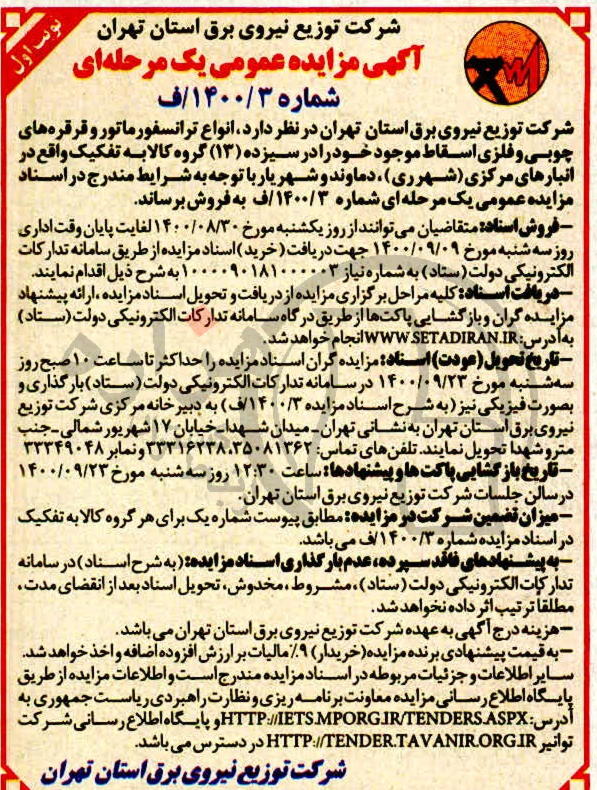 نوبت اول
شرکت توزیع نیروی برق استان تهران
آگهی مزایده عمومی یک مرحله‌ای
شماره ۱۴۰۰/۳/ف
شرکت توزیع نیروی برق استان تهران در نظر دارد، انواع ترانسفورماتور و قرقره‌های
چوبی و فلزی اسقاط موجود خود را در سیزده (۱۳) گروه کالا به تفکیک واقع در
انبارهای مرکزی (شهرری)، دماوند و شهریار با توجه به شرایط مندرج در اسناد
مزایده عمومی یک مرحله‌ای شماره ۱۴۰۰/۳/ف به فروش برساند.
–فروش اسناد: متقاضیان می‌توانند از روز یکشنبه مورخ ۱۴۰۰/۰۸/۳۰ لغایت پایان وقت اداری
روز سه شنبه مورخ ۱۴۰۰/۰۹/۰۹ جهت دریافت (خرید) اسناد مزایده از طریق سامانه تدارکات
الکترونیکی دولت (ستاد) به شماره نیاز ۱۰۰۰۰۹۰۱۸۱۰۰۰۰۰۳ به شرح ذیل اقدام نمایند.
–دریافت اسناد: کلیه مراحل برگزاری مزایده از دریافت و تحویل اسناد مزایده، ارائه پیشنهاد
مزایده گران و بازگشایی پاکت‌ها از طریق درگاه سامانه تدارکات الکترونیکی دولت (ستاد)
به آدرس: WWW.SETADIRAN.IR انجام خواهد شد.
–تاریخ تحویل (عودت) اسناد: مزایده گران اسناد مزایده را حداکثر تا ساعت ۱۰ صبح روز
سه‌شنبه مورخ ۱۴۰۰/۰۹/۲۳ در سامانه تدارکات الکترونیکی دولت (ستاد) بارگذاری و
بصورت فیزیکی نیز (به شرح اسناد مزایده ۱۴۰۰/۳/ف) به دبیرخانه مرکزی شرکت توزیع
نیروی برق استان تهران به نشانی تهران - میدان شهدا-خیابان ۱۷ شهریور شمالی-جنب
مترو شهدا تحویل نمایند. تلفن‌های تماس: ۳۵۰۸۱۳۶۲،۳۳۳۱۶۲۳۸ و نمابر ۳۳۳۴۹۰۴۸
–تاریخ بازگشایی پاکت‌ها و پیشنهادها: ساعت ۱۲:۳۰ روز سه شنبه مورخ ۱۴۰۰/۰۹/۲۳
در سالن جلسات شرکت توزیع نیروی برق استان تهران.
–میزان تضمین شرکت در مزایده: مطابق پیوست شماره یک برای هر گروه کالا به تفکیک
در اسناد مزایده شماره ۱۴۰۰/۳/ف می‌باشد.
–به پیشنهادهای فاقد سپرده، عدم بارگذاری اسناد مزایده: (به شرح اسناد) در سامانه
تدارکات الکترونیکی دولت (ستاد)، مشروط، مخدوش، تحویل اسناد بعد از انقضای مدت،
مطلقا ترتیب اثر داده نخواهد شد.
–هزینه درج آگهی به عهده شرکت توزیع نیروی برق استان تهران می‌باشد.
–به قیمت پیشنهادی برنده مزایده (خریدار) ۹٪ مالیات بر ارزش افزوده اضافه و اخذ خواهد شد.
سایر اطلاعات و جزئیات مربوطه در اسناد مزایده مندرج است و اطلاعات مزایده از طریق
پایگاه اطلاع رسانی مزایده معاونت برنامه ریزی و نظارت راهبردی ریاست جمهوری به
آدرس: HTTP://IETS.MPORG.IR/TENDERS.ASPX و پایگاه اطلاع رسانی شرکت
توانیر HTTP://TENDER.TAVANIR.ORG.IR در دسترس می‌باشد.
شرکت توزیع نیروی برق استان تهران